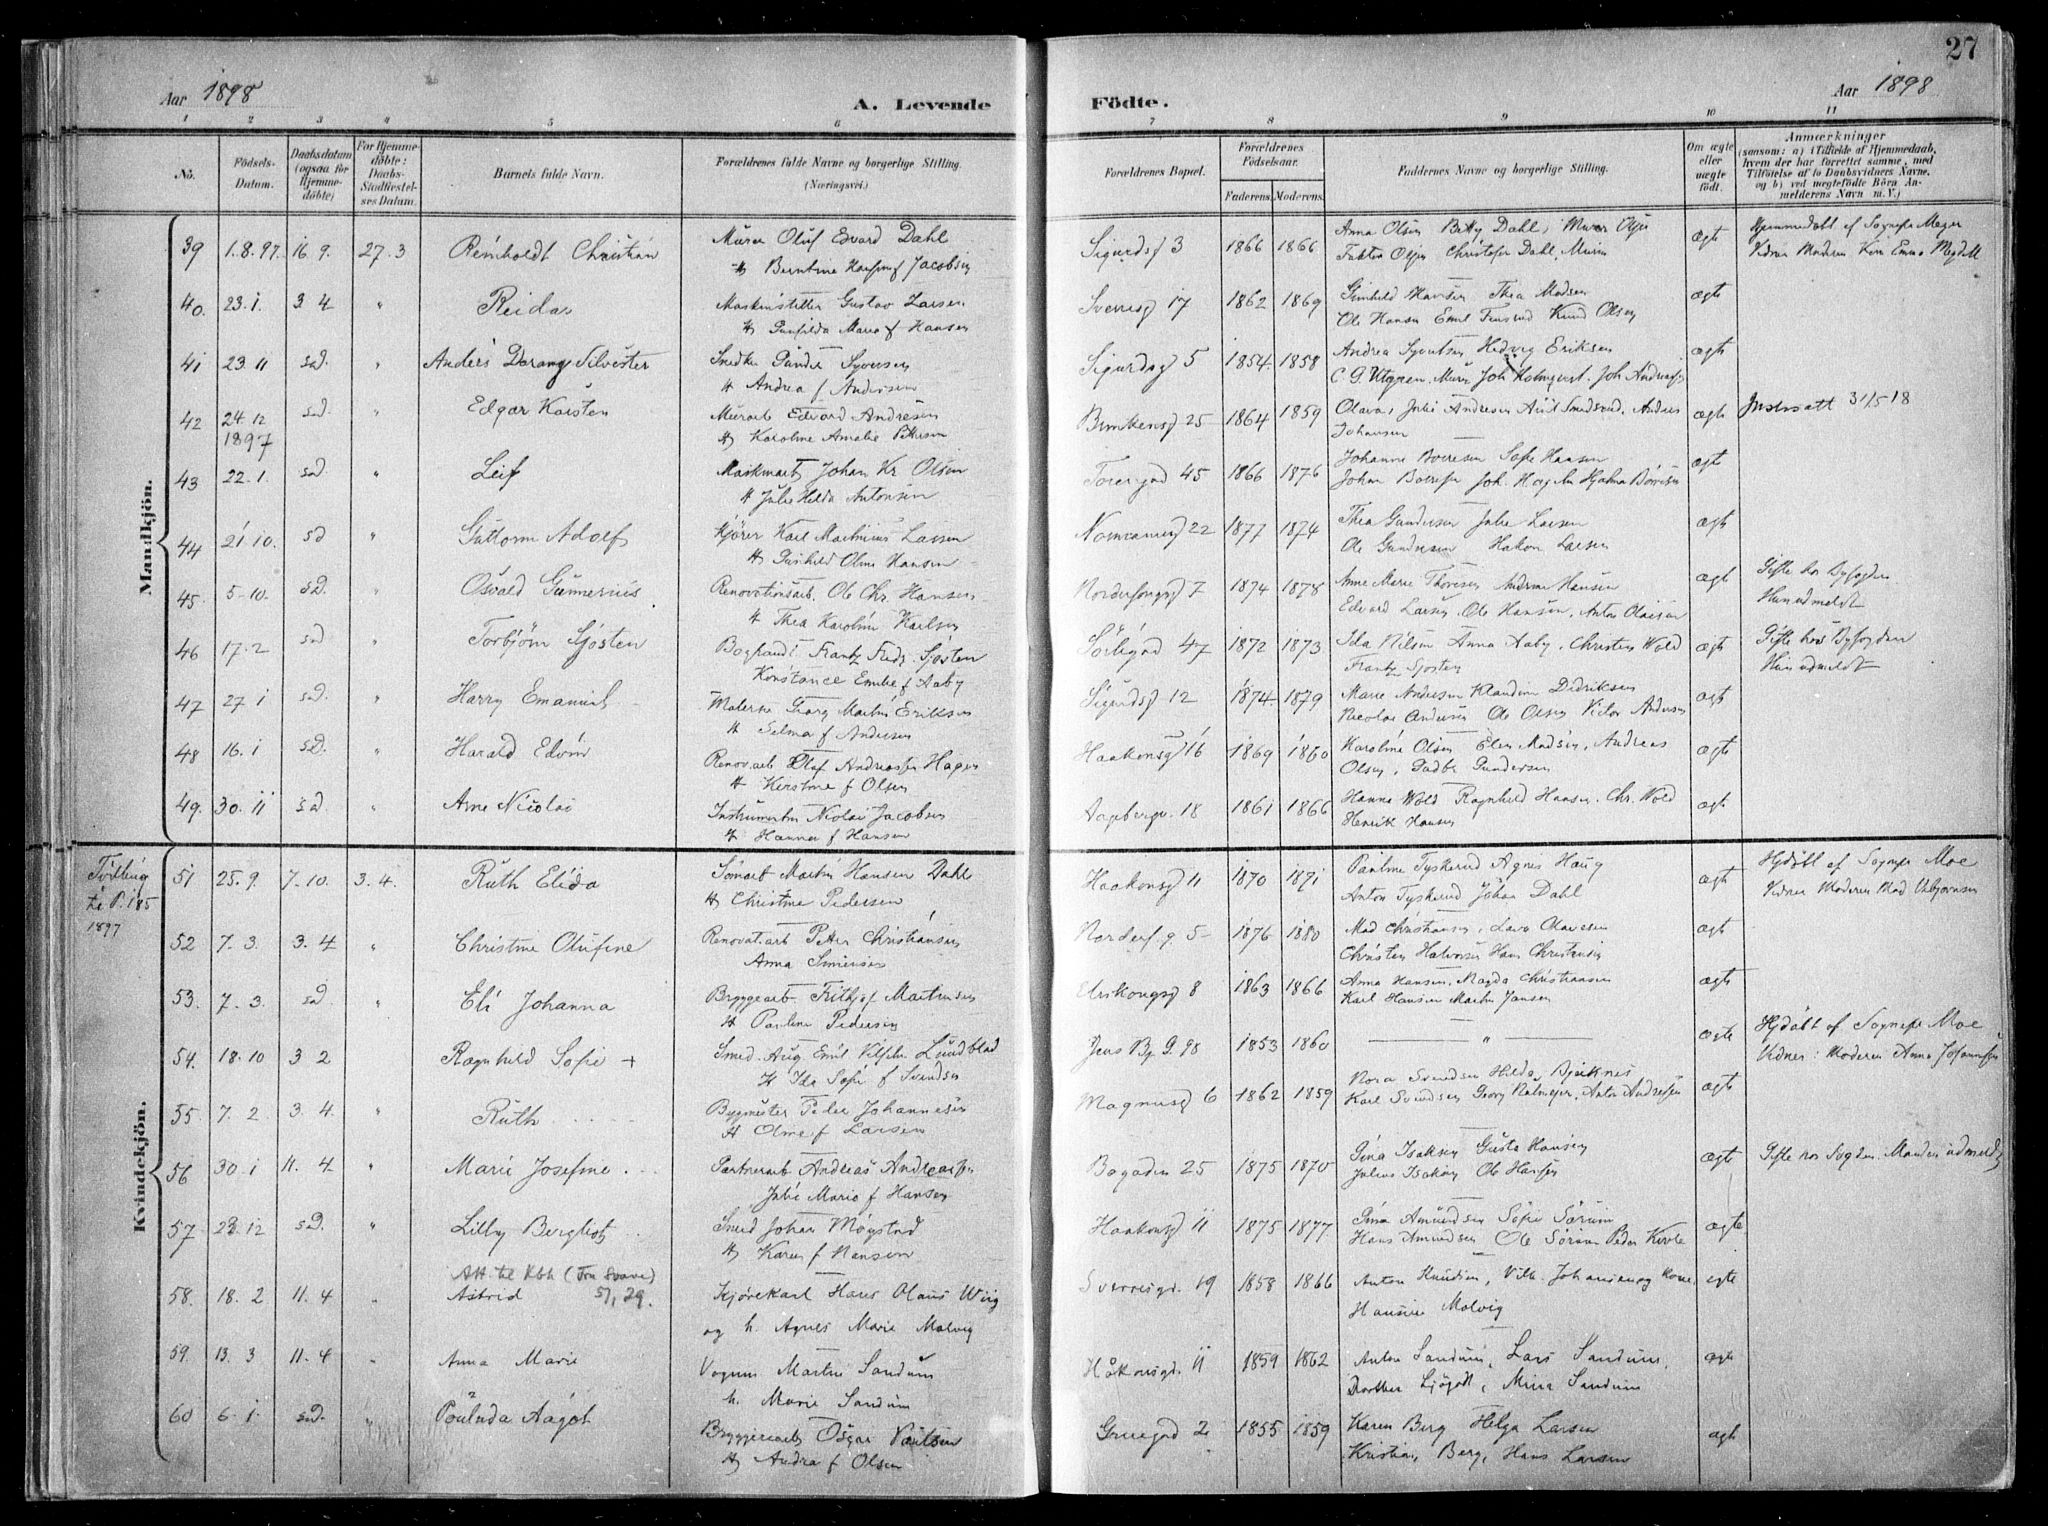 27
Aar 1898
A. Levende Födte.
Aar 1898
1 2 3 4 5 6 7 8 9 10 11
No.
Födsels-Datum.
Daabsdatum (ogsaa for Hjemme-döbte)
For Hjemme-döbte: Daabs-Stadfæstel-ses Datum.
Barnets fulde Navn.
Forældrenes fulde Navne og borgerlige Stilling. (Næringsvei.)
Forældrenes Bopæl.
Forældrenes Födselsaar.
Faderens. Moderens.
Faddernes Navne og borgerlige Stilling.
Om ægte eller uægte födt.
Anmærkninger
(saasom: a) i Tilfælde af Hjemmedaab,
hvem der har forrettet samme, med
Tilföielse af to Daabsvidners Navne,
og b) ved uægtefödte Börn An-
melderens Navn m. V.)
Mandkjön.
39 1.8.97 16 9. 27.3 Reinholdt Christian
Murer Oluf Edvard Dahl
Sigurdsg 3 1866 1866
Anna Olsen Betty Dahl, Murer
Christofer Dahl, Murer
ægte
Hjemmedøbt af Sognepr Meyer
40. 23.1. 3 4 " Reidar
Maskinstiller Gustav Larsen
Maria f Hansen
Sverresg 17 1862 1869
Gunhild Hansen Thea Madsen
Ole Hansen Emil Knud Olsen
ægte
41 23 11 sad. " Anders Silvester
Snedker Syversen
H Andrea f Andersen
Sigurdsg 5 1854 1858
Andrea Hedvig Eriksen
ægte
42 24 12 1897 sad. " Edgar Karsten
Murarb Edvard Andresen
H Karoline Amalie Pettersen
25 1864 1859
Olava, Julie Andresen
Johansen
ægte
31/5 18
43 22.1. sad " Leif
Maskinarb Johan Kr Olsen
H Julie Hilda Antonsen
45 1866 1876
Johanne Sofie Hansen
Johan Joh. Hagen Hjalmar
ægt
44 21.10. sd " Guttorm Adolf
Kjører Karl Martinius Larsen
H Gunhild Oline Hansen
Normannsg 22 1877 1874
Thea Gundersen Julie Larsen
Ole Gundersen Hakon Larsen
ægt
45. 5-10. sad. " Osvald Gunnerius
Renovationsarb. Ole Chr. Hansen
H Thea Karoline Karlsen
7 1874 1878
Anne Marie Thoresen Hansen
Edvard Larsen, Ole Hansen, Anton Olaisen
ægt
Gifte hos Byfogden
Hun udmeldt
46 17.2 sad " Torbjørn Sjøsten
Frantz Fredr. Sjøsten
Konstance Emilie f Aaby
47 1872 1873
Ida Nilsen Anna Aaby, Christen Wold
Frantz Sjøsten
ægt
Gifte hos Byfogden
Hun udmeldt
47 27 1 sad. " Harry Emanuel
Malersv Georg Martin Eriksen
H Selma f Andersen
Sigurdsg 12 1874 1879
Marie Andersen Klaudine Didriksen
Nicolai Andersen Ole Olsen Victor Andersen
ægt
48 16.1 sd. " Harald Edvin
Renov.arb Olaf Hagen
H Kirstine f Olsen
Haakonsg 16 1869 1860
Karoline Olsen Elen Madsen, Andreas
Olsen, Gundersen
ægt
49. 30.11 sad. " Arne Nicolai
Nicolai Jacobsen
H Hanna f Hansen
18 1861 1866
Hanna Wold Ragnhild Hansen. Chr. Wold
Henrik Hansen
ægt.
Kvindekjön.
1897
51 25.9. 7.10. 3.4. Ruth Elida
Martin Hansen Dahl
H Christine Pedersen
Haakonsg 11 1870 1871
Pauline Tyskerud Agnes Haug
Anton Tyskerud Johan Dahl
ægt
Hjdøbt af Sognepr Moe
52 7.3. 3.4 " Christine Olufine
Renovat.arb Petter Christiansen
Anna Simensen
5 1876 1880
Christiansen, Lava Olavesen
Christen Halvorsen Hans Christensen
ægt
53. 7.3. sad " Eli Johanna
Bryggearb. Fritjof Martinsen
H Pauline Pedersen
8 1863 1866
Anna Hansen, Magda Christiansen
Karl Hansen Martin Jansen
ægt
54. 18.10 3 2 " Ragnhild Sofie +
Smed. Aug Emil Vilhelm Lundblad
H Ida Sofie f Svendsen
Jens Bj g. 98 1853 1860
"
ægte
Hjdøbt af Sognepr Moe
Vidner: Moderen Anna
55. 7.2. 3.4. " Ruth
Bygmester Peder Johannesen
H Oline f Larsen
Magnusg 6 1862 1859
Nora Svendsen Hilda Bjerknes
Karl Svendsen Georg Anton Andresen
ægt
56 30.1 11.4 " Marie Josefine
Andreas Andreassen
Julie Marie f Hansen
Bogaden 25 1875 1870
Gina Isaksen Gusta Hansen
Julius Isaksen Ole Hansen
ægt
57 23.12 sd. " Lilly Bergliot
Smed Johan Møgstad
H Karen f Hansen
Haakonsg 11 1875 1877
Gina Amundsen Sofie Sørum
Hans Amundsen Ole Sørum Peder
ægte
Att til Kbh (Fru Svane) 5/1, 29.
58. 18.2 11.4 " Astrid
Kjørekarl Hans Olaus Wiig
og h. Agnes Marie Molvig
Sverresgd. 19 1858 1866
Anton Knudsen, Vilh. Johansen og Kone,
Hansine Molvig
ægte
59. 13.3 11.4 " Anna Marie
Vognm Martin Sandum
h. Marie Sandum
Håkonsgd. 11 1859 1862
Anton Sandum, Lars Sandum,
Dorthea Mina Sandum
ægte
60 6.1. sad. " Paulinda Aagot
Bryggeriarb Oscar Paulsen
H Andrea f Olsen
Gruegad 2 1855 1859
Karen Berg Helga Larsen
Kristian Berg, Hans Larsen
ægt